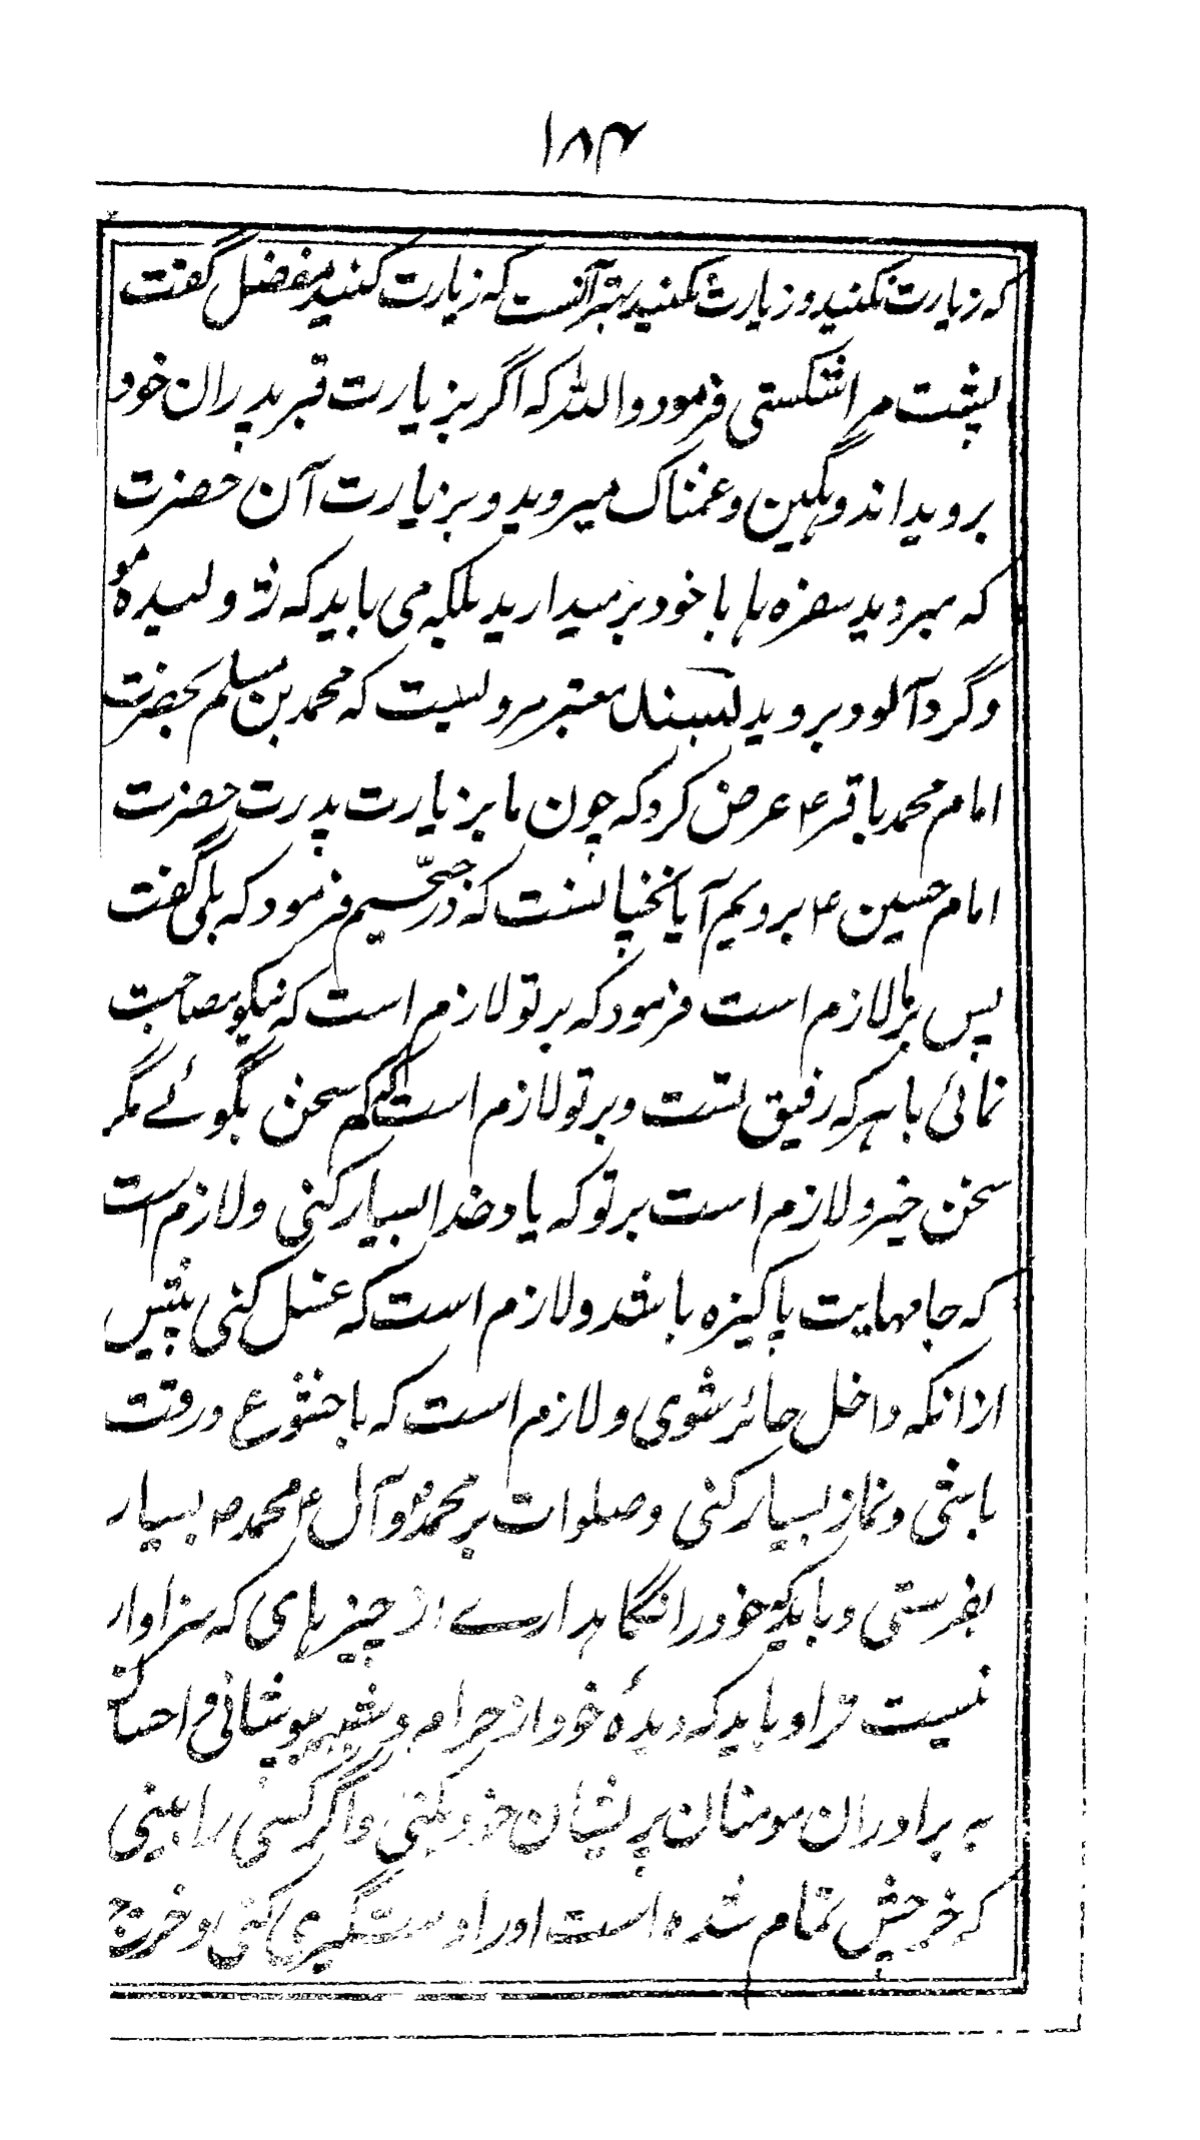 ۱۸۴
که زیارت نکنید و زیارت نکنید بهتر آنست که زیارت کنید مفضل گفت
پشت مرا شکستی فرمود واللہ که اگر بزیارت قبر پدران خود
بروید اندوہگین و غمناک میروید و بزیارت آن حضرت
که میروید سفرہ ہا با خود بر میدارید بلکہ می باید که ژولیدہ مو
و گرد آلود بروید بسند معتبر مرویست که محمد بن مسلم بحضرت
امام محمد باقر ع عرض کرد که چون ما بزیارت پدرت حضرت
امام حسین ع برویم آیا نخپانست که در حجیم فرمود که بلی گفت
پس بر ما لازم است فرمود که بر تو لازم است که نیکو مصاحبت
نمائی با ہر که رفیق تست و بر تو لازم است که کم سخن بگوئے مگر
سخن خیر و لازم است بر تو که یاد خدا بسیار کنی و لازم است
که جامہایت پاکیزہ باشد و لازم است که غسل کنی پیش
ازانکه داخل حائر شوی و لازم است که با خشوع و رقت
باشی و نماز بسیار کنی و صلوات بر محمد و آل محمد بسیار
بفرستی و باید که خود را نگاہدارے از چیزہای که سزاوار
نیست ترا و باید که دیدہ خود از حرام و شبہہ بپوشانی و احسان
به برادران مومنان پریشان خود بکنی و اگر کسی را ببینی
که خرجیش تمام شدہ است او را دستگیری کنی و خرج